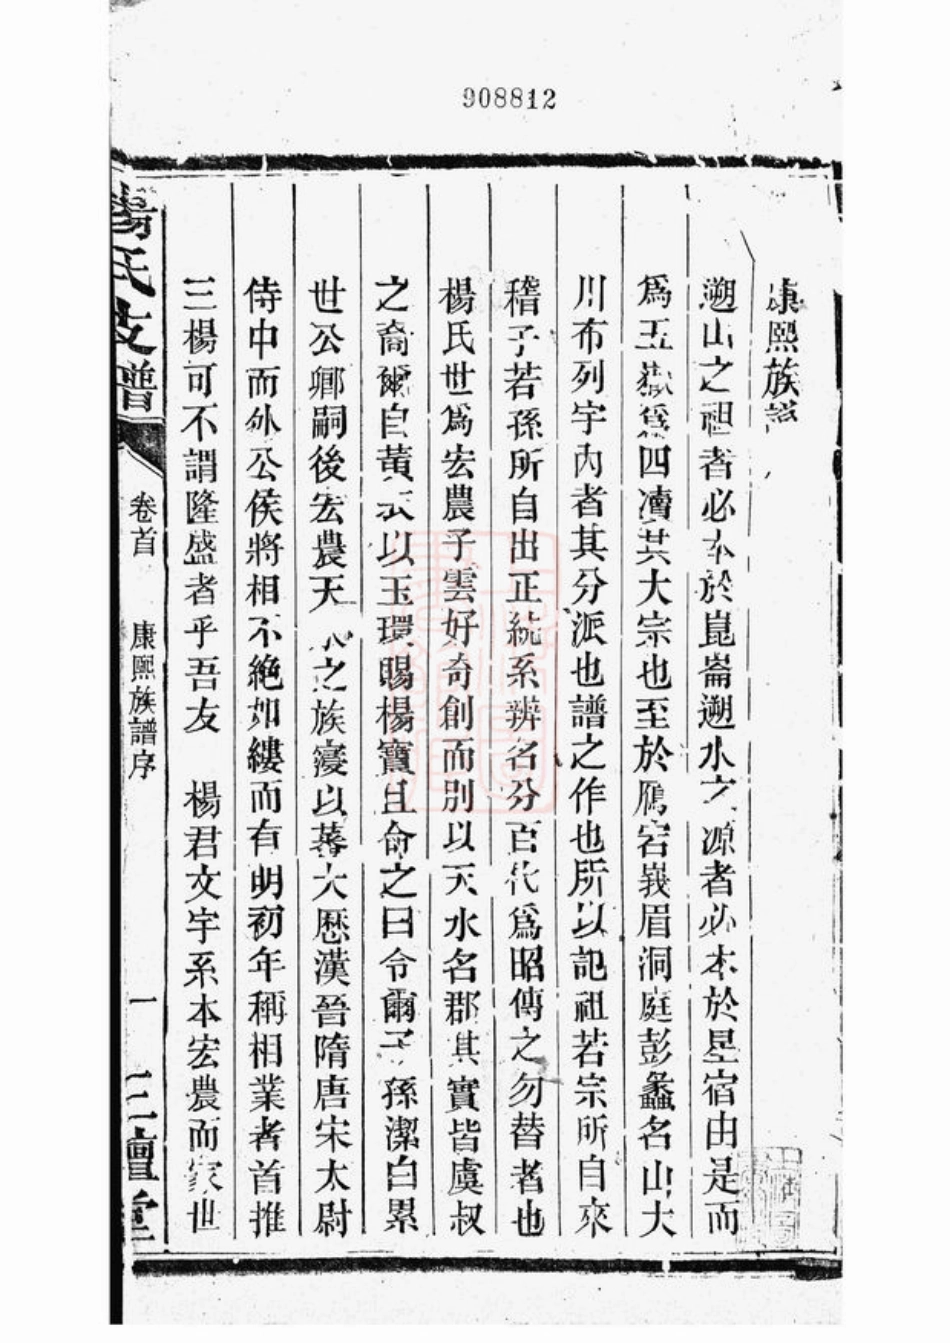 908812
康熙族譜
遡山之祖者必本於崑崙遡水之源者必本於星宿由是而
爲五嶽爲四瀆其大宗也至於鴈宕峩眉洞庭彭蠡名山大
川布列宇內者其分派也譜之作也所以記祖若宗所自來
稽子若孫所自出正統系辨名分百代爲昭傳之勿替者也
楊氏世爲宏農子雲好奇創而別以天水名郡其實皆虞叔
之裔爾自黃衣以玉環賜楊寶且命之曰令爾子孫潔白累
世公卿嗣後宏農天水之族寖以蕃大歷漢晉隋唐宋太尉
侍中而外公侯將相不絶如縷而有明初年稱相業者首推
三楊可不謂隆盛者乎吾友 楊君文宇系本宏農而家世
楊氏支譜 卷首 康熙族譜序 一 三鱣堂